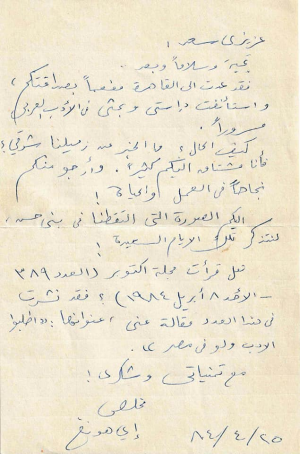 عزيزي سعد !
تحية وسلاماً وبعد .
فقد عدت الى القاهرة مفعماً بصداقتكم ،
واستأنفت دراستي وبحثي في الأدب العربي
مسروراً .
كيف الحال ؟ ما الخبر من زميلنا شوقي ؟
فأنا مشتاق اليكم كثيراً . وأرجو منكم
نجاحاً في العمل والحياة !
اليكم الصورة التي التقطنا في بني حسن ،
لنتذكر تلك الأيام السعيدة !
هل قرأت مجلة اكتوبر (العدد ٣٨٩
– الأحد ٨ أبريل ١٩٨٤) ؟ فقد نشرت
في هذا العدد مقالة عني ، عنوانها : « اطلبوا
الأدب ولو في مصر » .
مع تمنياتي وشكري !
مخلص
إي هونغ
٨٤/٤/٢٥